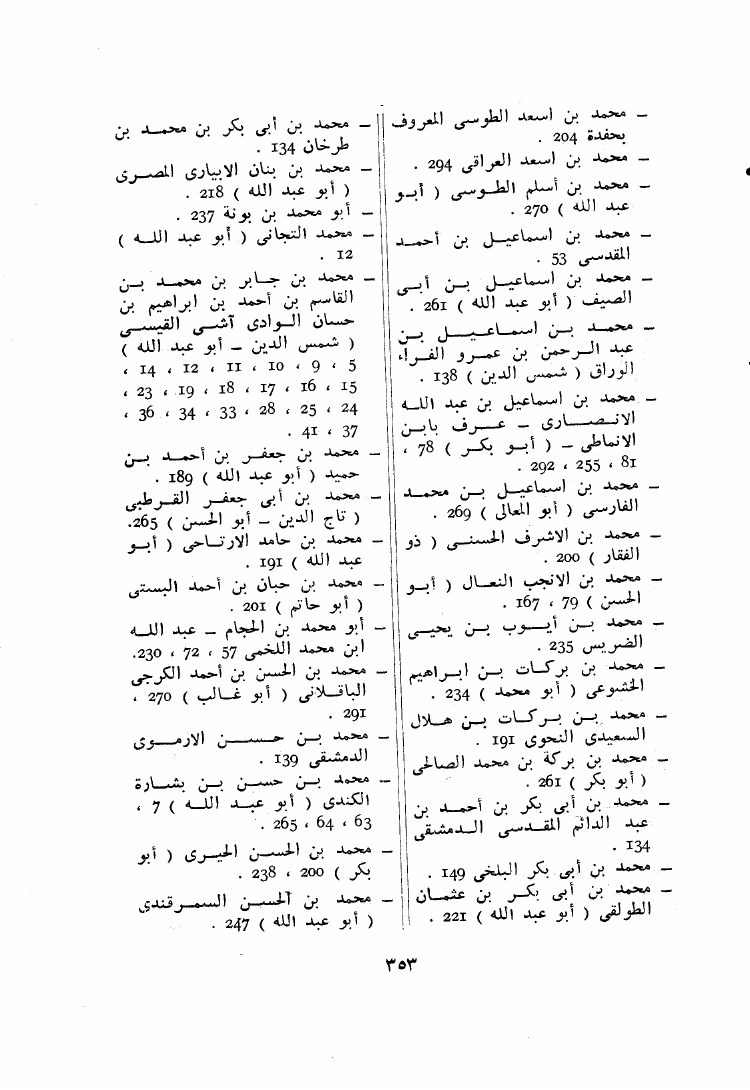 – محمد بن اسعد الطوسى المعروف
بحفدة 204 .
– محمد بن اسعد العراقى 294 .
– محمد بن أسلم الطوسى ( أبو
عبد الله ) 270 .
– محمد بن اسماعيل بن أحمد
المقدسى 53 .
– محمد بن اسماعيل بن أبى
الصيف ( أبو عبد الله ) 261 .
– محمد بن اسماعيل بن
عبد الرحمن بن عمرو الفراء
الوراق ( شمس الدين ) 138 .
– محمد بن اسماعيل بن عبد الله
الانصارى – عرف بابن
الانماطى – ( أبو بكر ) 78 ،
81 ، 255 ، 292 .
– محمد بن اسماعيل بن محمد
الفارسى ( أبو المعالى ) 269 .
– محمد بن الاشرف الحسنى ( ذو
الفقار ) 200 .
– محمد بن الانجب النعال ( أبو
الحسن ) 79 ، 167 .
– محمد بن أيوب بن يحيى
الضريس 235 .
– محمد بن بركات بن ابراهيم
الخشوعى ( أبو محمد ) 234 .
– محمد بن بركات بن هلال
السعيدى النحوى 191 .
– محمد بن بركة بن محمد الصالحى
( أبو بكر ) 261 .
– محمد بن أبى بكر بن أحمد بن
عبد الدائم المقدسى الدمشقى
134 .
– محمد بن أبى بكر البلخى 149 .
– محمد بن أبى بكر بن عثمان
الطولقى ( أبو عبد الله ) 221 .
– محمد بن أبى بكر بن محمد بن
طرخان 134 .
– محمد بن بنان الابيارى المصرى
( أبو عبد الله ) 218 .
– أبو محمد بن بونة 237 .
– محمد التجانى ( أبو عبد الله )
12 .
– محمد بن جابر بن محمد بن
القاسم بن أحمد بن ابراهيم بن
حسان الوادى آشى القيسى
( شمس الدين – أبو عبد الله )
5 ، 9 ، 10 ، 11 ، 12 ، 14 ،
15 ، 16 ، 17 ، 18 ، 19 ، 23 ،
24 ، 25 ، 28 ، 33 ، 34 ، 36 ،
37 ، 41 .
– محمد بن جعفر بن أحمد بن
حميد ( أبو عبد الله ) 189 .
– محمد بن أبى جعفر القرطبى
( تاج الدين – أبو الحسن ) 265.
– محمد بن حامد الارتاحى ( أبو
عبد الله ) 191 .
– محمد بن حبان بن أحمد البستى
( أبو حاتم ) 201 .
– أبو محمد بن الحجام – عبد الله
ابن محمد اللخمى 57 ، 72 ، 230.
– محمد بن الحسن بن أحمد الكرجى
الباقلانى ( أبو غالب ) 270 ،
291 .
– محمد بن حسن الارموى
الدمشقى 139 .
– محمد بن حسن بن بشارة
الكندى ( أبو عبد الله ) 7 ،
63 ، 64 ، 265 .
– محمد بن الحسن الحيرى ( أبو
بكر ) 200 ، 238 .
– محمد بن الحسن السمرقندى
( أبو عبد الله ) 247 .
٣٥٣